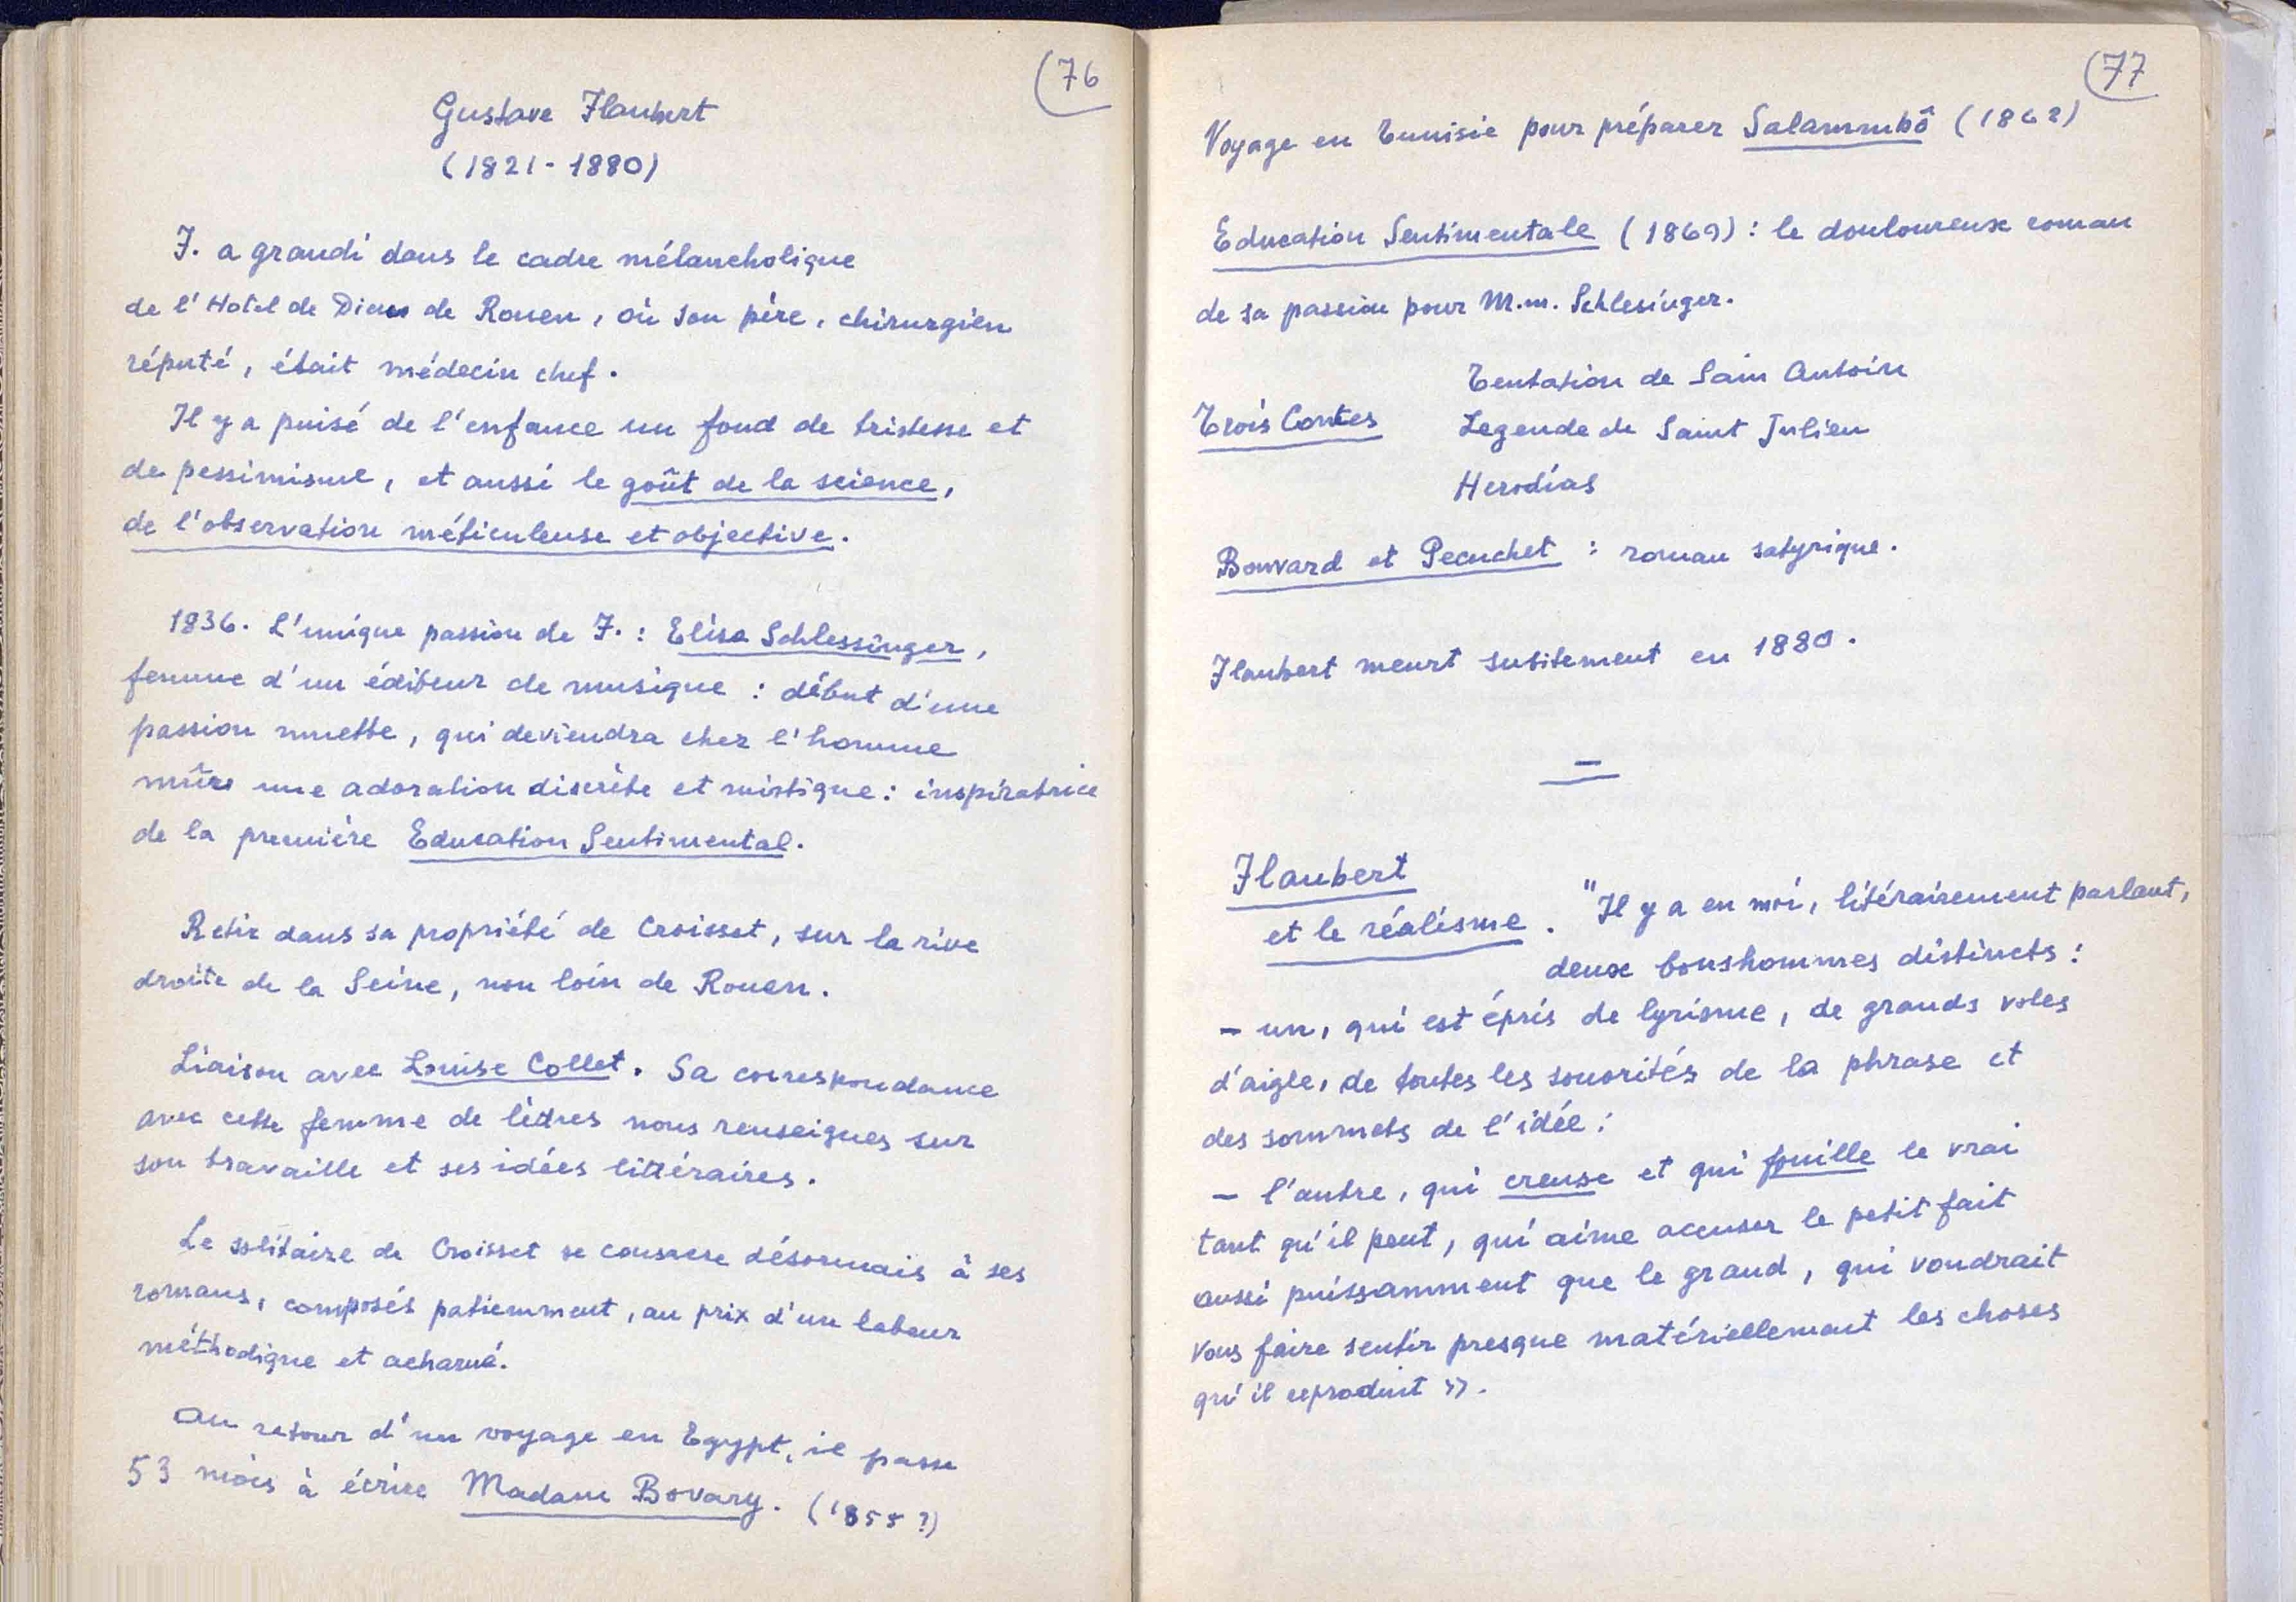 (76
Gustave Flaubert
(1821-1880)
F. a grandi dans le cadre mélancholique
de l'Hotel de Dieu de Rouen, où son père, chirurgien
réputé, était médecin chef.
Il y a puisé de l'enfance un fond de tristesse et
de pessimisme, et aussi le goût de la science,
de l'observation méticuleuse et objective.
1836. L'unique passion de F. : Elisa Schlessinger,
femme d'un éditeur de musique : début d'une
passion muette, qui deviendra chez l'homme
mûre une adoration discrète et mistique : inspiratrice
de la première Education Sentimental.
Retir dans sa propriété de Croisset, sur la rive
droite de la Seine, non loin de Rouen.
Liaison avec Louise Collet. Sa correspondance
avec cette femme de lèttres nous renseignes sur
son travaille et ses idées littéraires.
Le solitaire de Croisset se consacre désormais à ses
romans, composés patiemment, au prix d'un labeur
méthodique et acharné.
Au retour d'un voyage en Egypt, il passe
53 mois à écrire Madame Bovary. (1855 ?)
(77
Voyage en Tunisie pour préparer Salammbô (1862)
Education Sentimentale (1869) : le douloureux roman
de sa passion pour M.m. Schlesinger.
Tentation de Sain Antoin
Trois Contes Legende de Saint Julien
Herodias
Bouvard et Pecuchet : roman satyrique.
Flaubert meurt subitement en 1880.
Flaubert
et le réalisme. "Il y a en moi, litérairement parlant,
deux bonshommes distincts :
- un, qui est épris de lyrisme, de grands voles
d'aigle, de toutes les sonorités de la phrase et
des sommets de l'idée :
- l'autre, qui creuse et qui fouille le vrai
tant qu'il peut, qui aime accuser le petit fait
aussi puissamment que le grand, qui voudrait
vous faire sentir presque matériellement les choses
qu'il reproduit ».